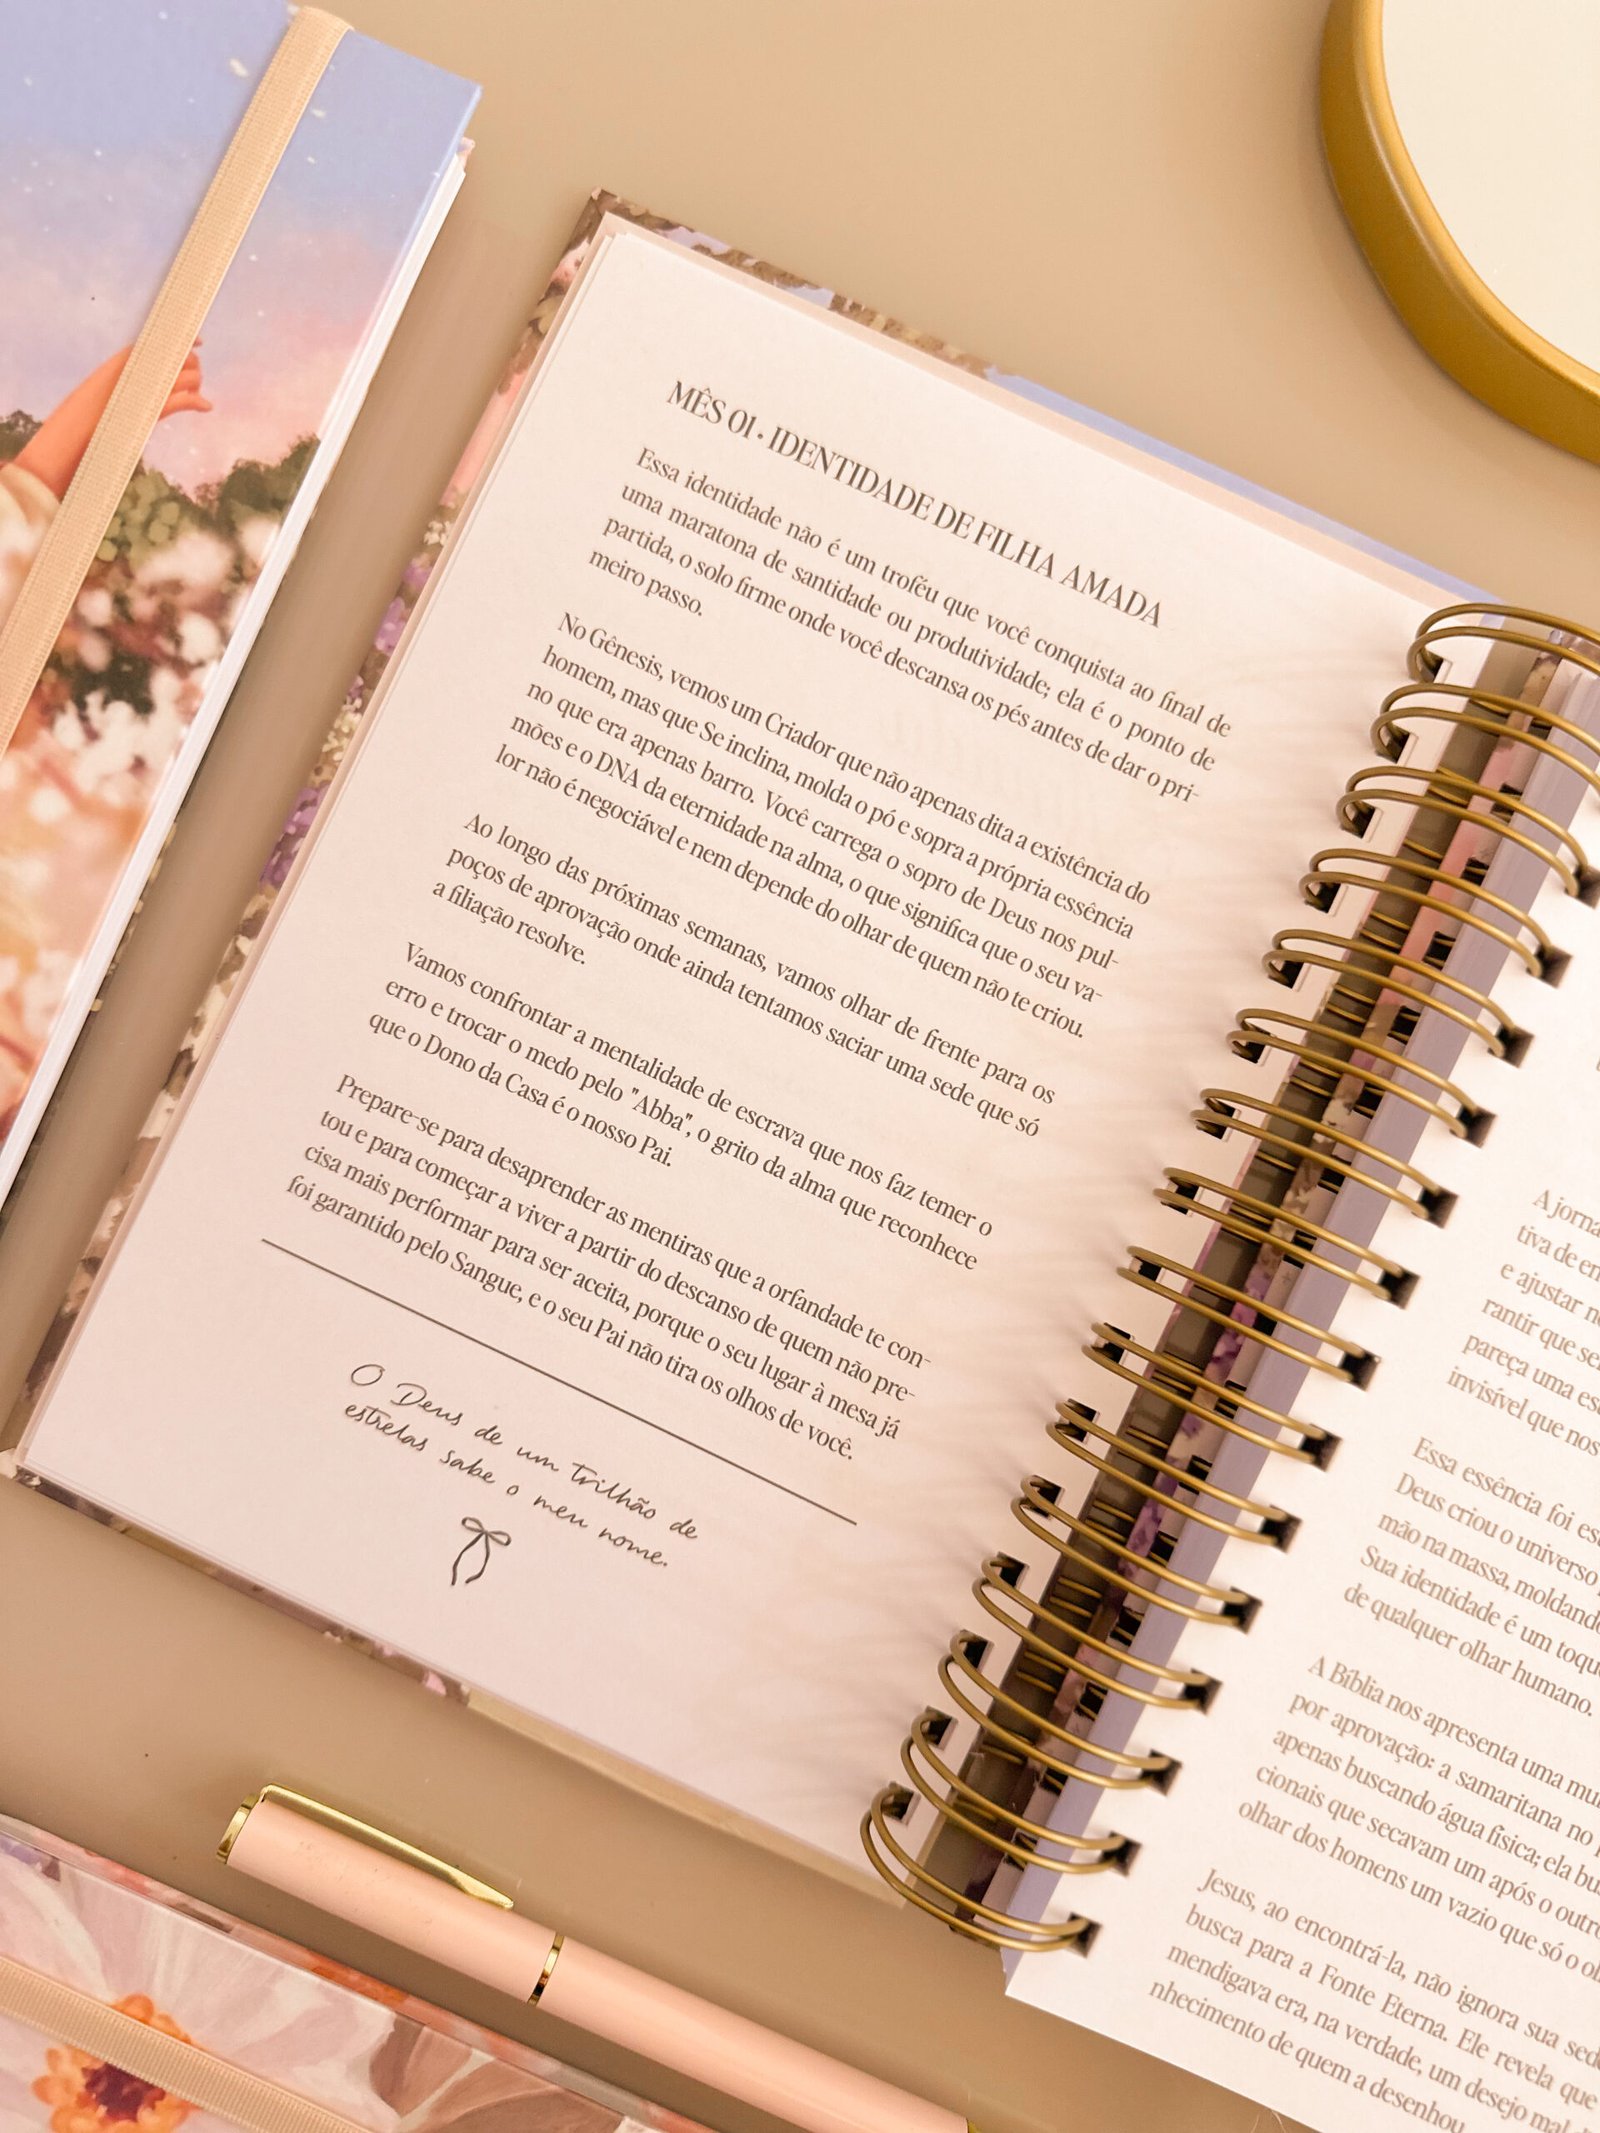 MÊS 01 • IDENTIDADE DE FILHA AMADA
Essa identidade não é um troféu que você conquista ao final de
uma maratona de santidade ou produtividade; ela é o ponto de
partida, o solo firme onde você descansa os pés antes de dar o pri-
meiro passo.
No Gênesis, vemos um Criador que não apenas dita a existência do
homem, mas que Se inclina, molda o pó e sopra a própria essência
no que era apenas barro. Você carrega o sopro de Deus nos pul-
mões e o DNA da eternidade na alma, o que significa que o seu va-
lor não é negociável e nem depende do olhar de quem não te criou.
Ao longo das próximas semanas, vamos olhar de frente para os
poços de aprovação onde ainda tentamos saciar uma sede que só
a filiação resolve.
Vamos confrontar a mentalidade de escrava que nos faz temer o
erro e trocar o medo pelo "Abba", o grito da alma que reconhece
que o Dono da Casa é o nosso Pai.
Prepare-se para desaprender as mentiras que a orfandade te con-
tou e para começar a viver a partir do descanso de quem não pre-
cisa mais performar para ser aceita, porque o seu lugar à mesa já
foi garantido pelo Sangue, e o seu Pai não tira os olhos de você.
O Deus de um trilhão de
estrelas sabe o meu nome.
A
tiva de
e ajustar
rantir que
pareça uma
invisível que nos
Essa essência foi
Deus criou o universo
mão na massa,
Sua identidade é um
de qualquer olhar humano.
A Bíblia nos apresenta uma
por aprovação: a samaritana no
apenas buscando água física; ela
cionais que secavam um após o
olhar dos homens um vazio que só o
Jesus, ao encontrá-la, não ignora sua
busca para a Fonte Eterna. Ele revela que
mendigava era, na verdade, um desejo
nhecimento de quem a desenhou